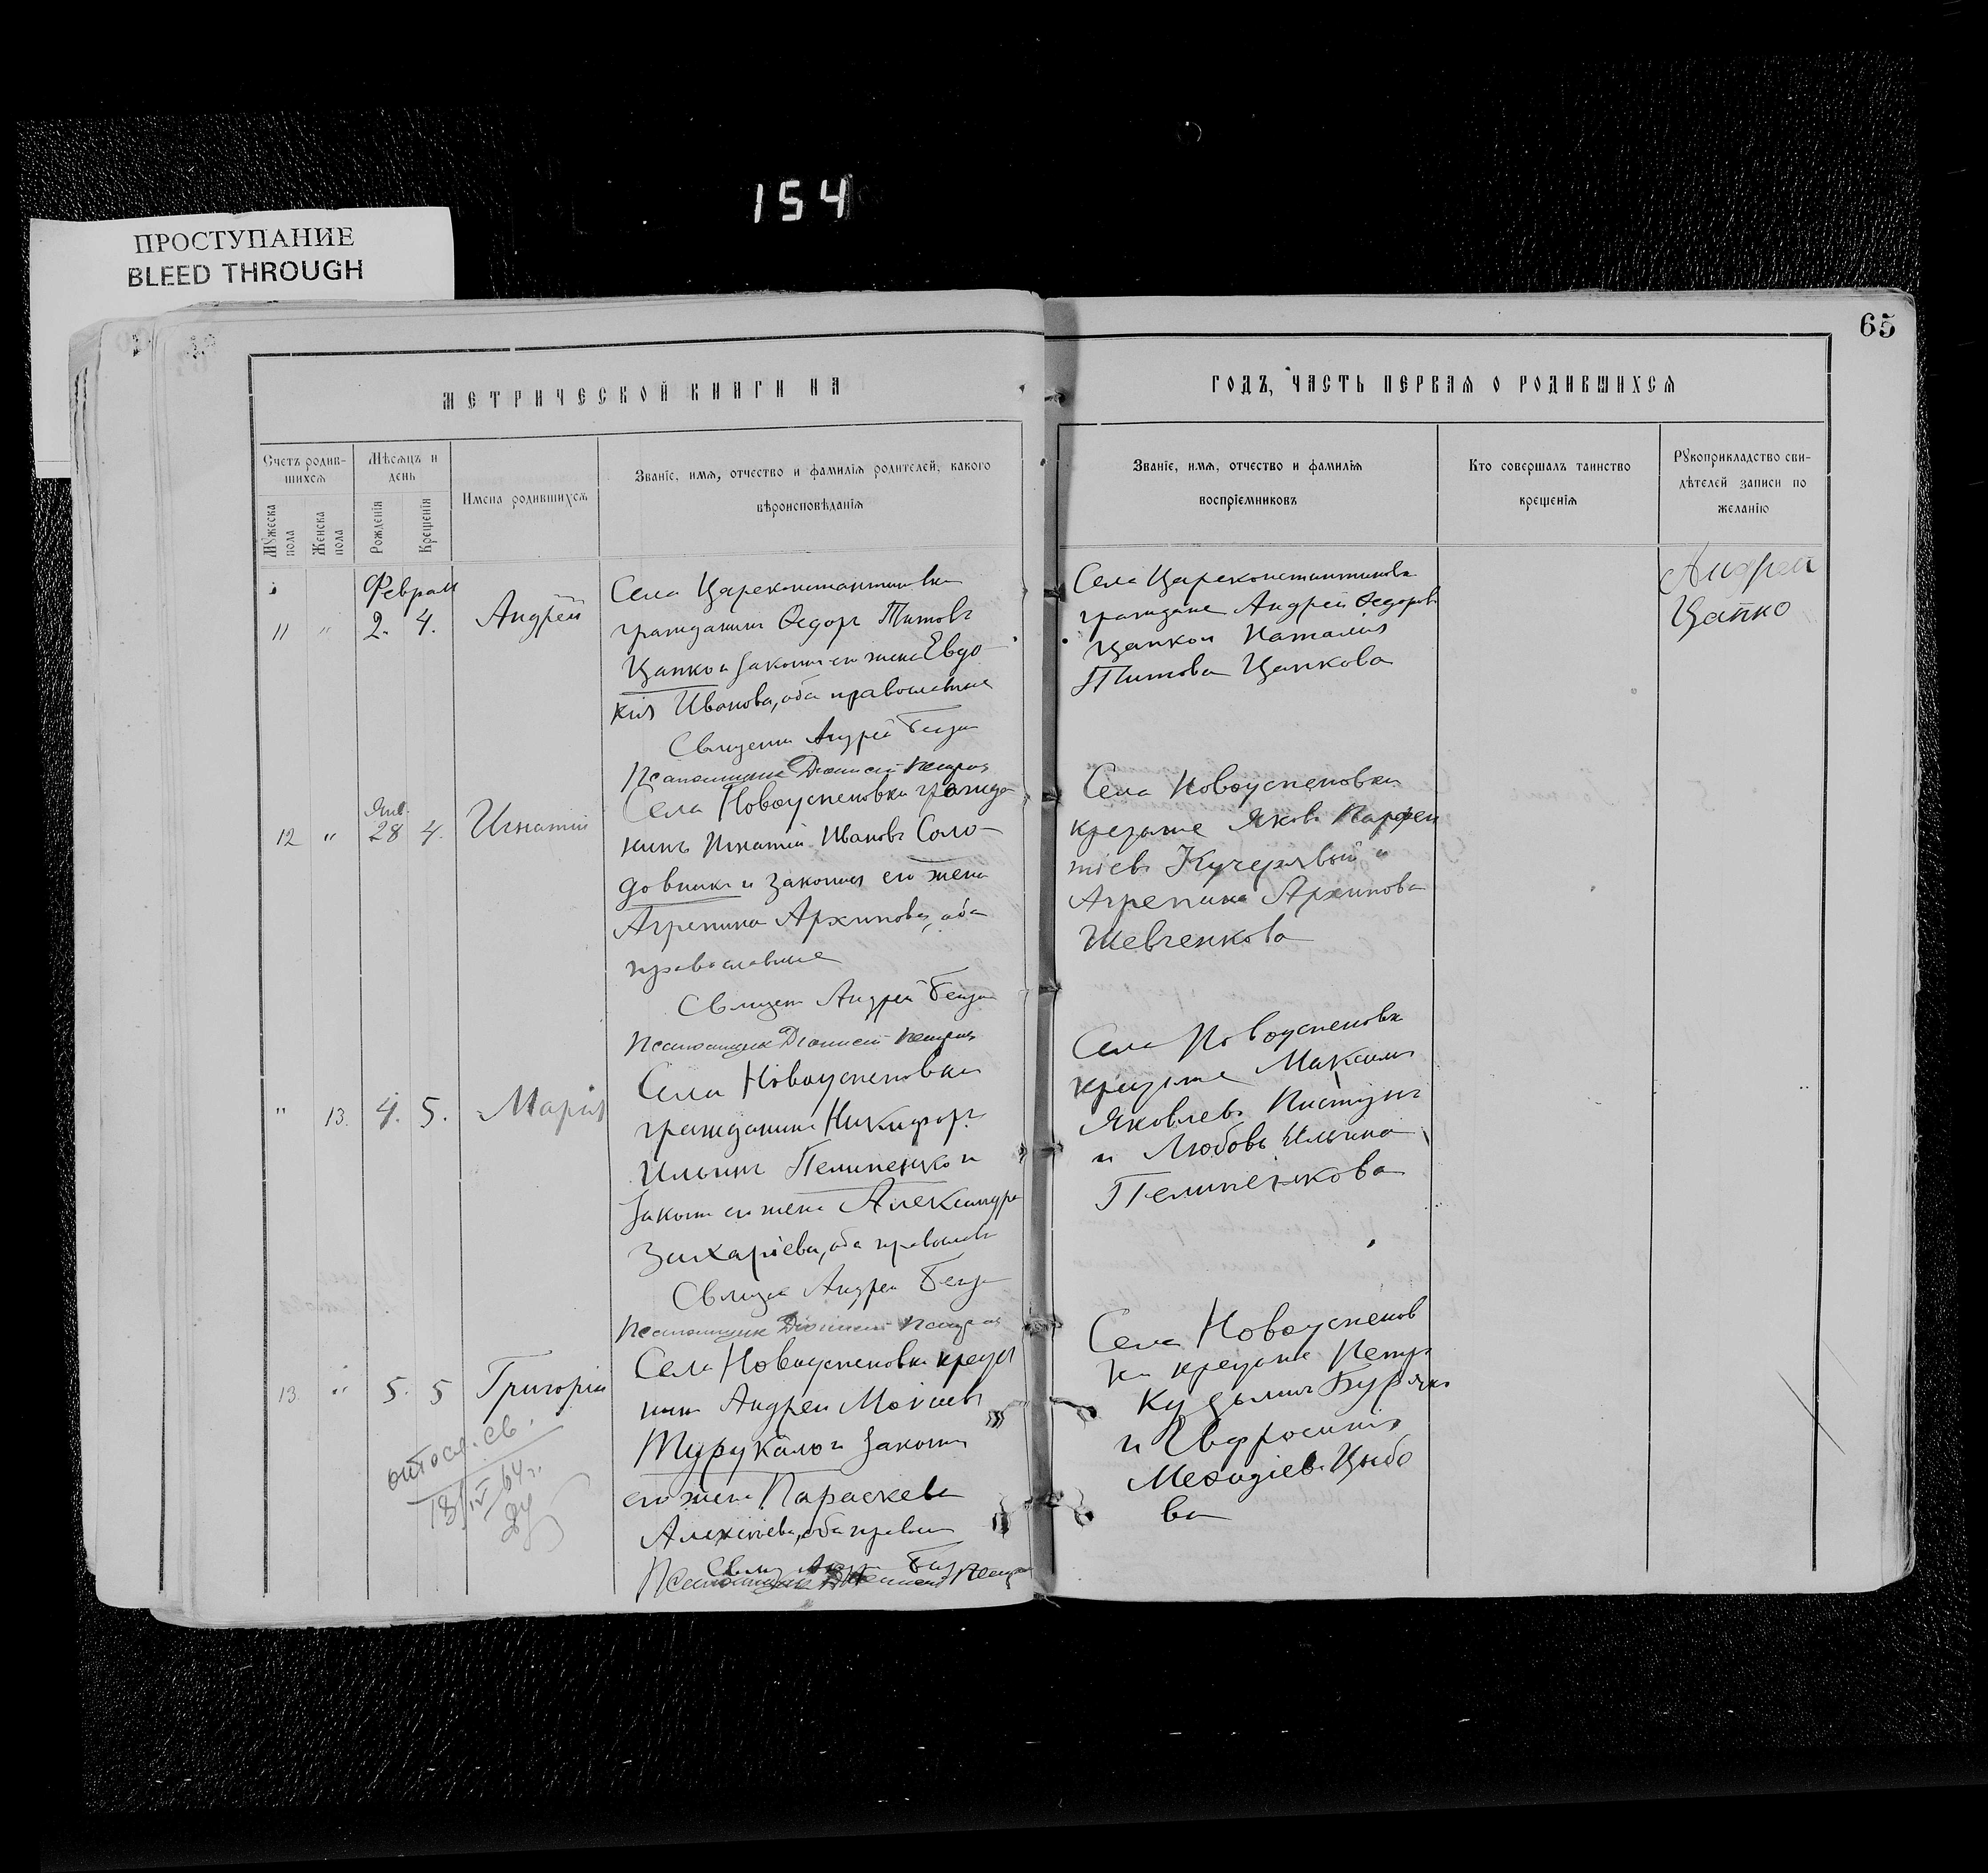 154
ПРОСТУПАНИЕ
BLEED THROUGH
65
МЕТРИЧЕСКОЙ КНИГИ НА
ГОДЪ, ЧАСТЬ ПЕРВАЯ О РОДИВШИХСЯ
Счетъ родив-
шихся
Мужеска пола
Женска пола
Мѣсяцъ и
день
Рожденія
Крещенія
Имена родившихся
Званіе, имя, отчество и фамилія родителей, какого
вѣроисповѣданія
Званіе, имя, отчество и фамилія
воспріемниковъ
Кто совершалъ таинство
крещенія
Рукоприкладство сви-
дѣтелей записи по
желанію
Феврал
11 " 2. 4. Андрей
Села Цареконстантиновки
гражданинъ Ѳедоръ Титовъ
Цапко и законн его жена Евдо
кія Иванова, оба православные
Андрей
Псаломщик Діонисій
Села Цареконстантиновки
граждане Андрей Ѳедоровъ
Цапко и Наталия
Титова Цапкова
Андрей
Цапко
Янв.
12 " 28 4. Игнатій
Села Новоуспеновки гражда
нинъ Игнатій Ивановъ Соло-
довник и законная его жена
Агрепина Архипова, оба
православные
Андрей
Псаломщик Діонисій
Села Новоуспеновки
Яковъ Парфен
тіевъ Кучерявый и
Агрепина Архипова
Шевченкова
" 13. 4. 5. Марія
Села Новоуспеновки
гражданинъ Никифоръ
Ильинъ Пелипенко и
законн его жена Александра
Захаріева, оба православ
Андрей
Псаломщик Діонисій
Села Новоуспеновки
Максимъ
Яковлевъ Пистунъ
и Любовь Ильина
Пелипенкова
13 " 5. 5 Григорій
Села Новоуспеновки
Андрей Моисеев
Турукало и законн
его жена Параскева
Алексіева, оба правосл
Псаломщик
Села Новоуспенов
ки Петръ
Кузьминъ Буряк
и Евфросинія
Меѳодіева Цыбо
ва
18/IV 64 г.